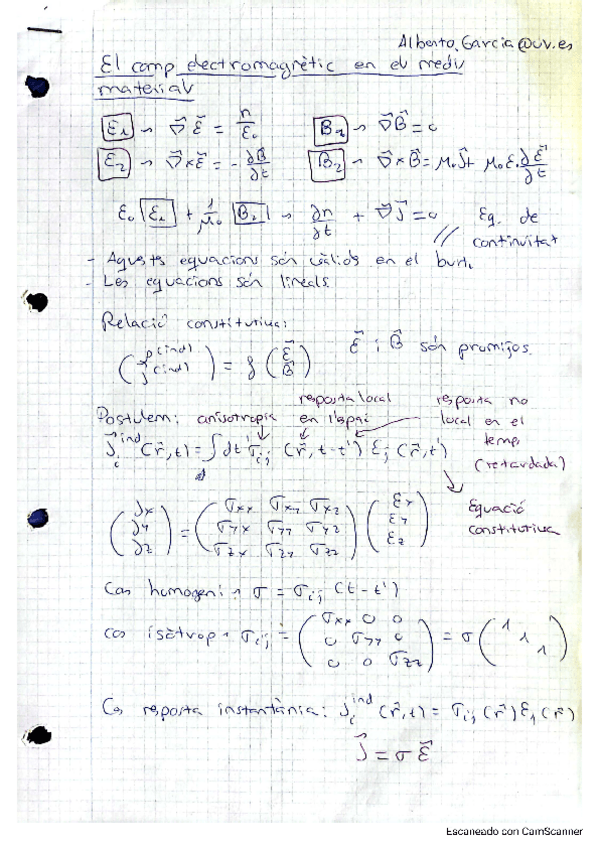 Alberto.Garcia@uv.es
El camp electromagnètic en el medi
material
E₁ → ∇⃗ E⃗ = n/ε₀   B₁ → ∇⃗B⃗ = 0
E₂ → ∇⃗×E⃗ = -∂B⃗/∂t   B₂ → ∇⃗×B⃗ = μ₀J⃗ + μ₀ε₀ ∂E⃗/∂t
ε₀ E₁ + 1/μ₀ B₂ → ∂n/∂t + ∇⃗J⃗ = 0   Eq. de
continuïtat
- Aquests equacions són vàlids en el buit.
- Les equacions són lineals.
Relació constitutiva:
(ρ^(ind) j^(ind)) = f (E⃗ B⃗)   E⃗ i B⃗ són promitjos.
resposta local   resposta no
Postulem: anisotropia en l'espai   local en el
temps
J⃗ᵢ^ind (r⃗,t) = ∫dt' σᵢⱼ (r⃗, t-t') Eⱼ (r⃗,t')
(retardada)
Equació
constitutiva
(Jx Jy Jz) = (σxx σxy σxz σyx σyy σyz σzx σzy σzz) (Ex Ey Ez)
Cas homogeni → σ = σᵢⱼ (t-t')
cas isòtrop → σᵢⱼ = (σxx 0 0 0 σyy 0 0 0 σzz) = σ (1 1 1)
Cas resposta instantània: Jᵢ^ind (r⃗,t) = σᵢⱼ(r⃗)Eⱼ(r⃗)
J⃗ = σ E⃗
Escaneado con CamScanner